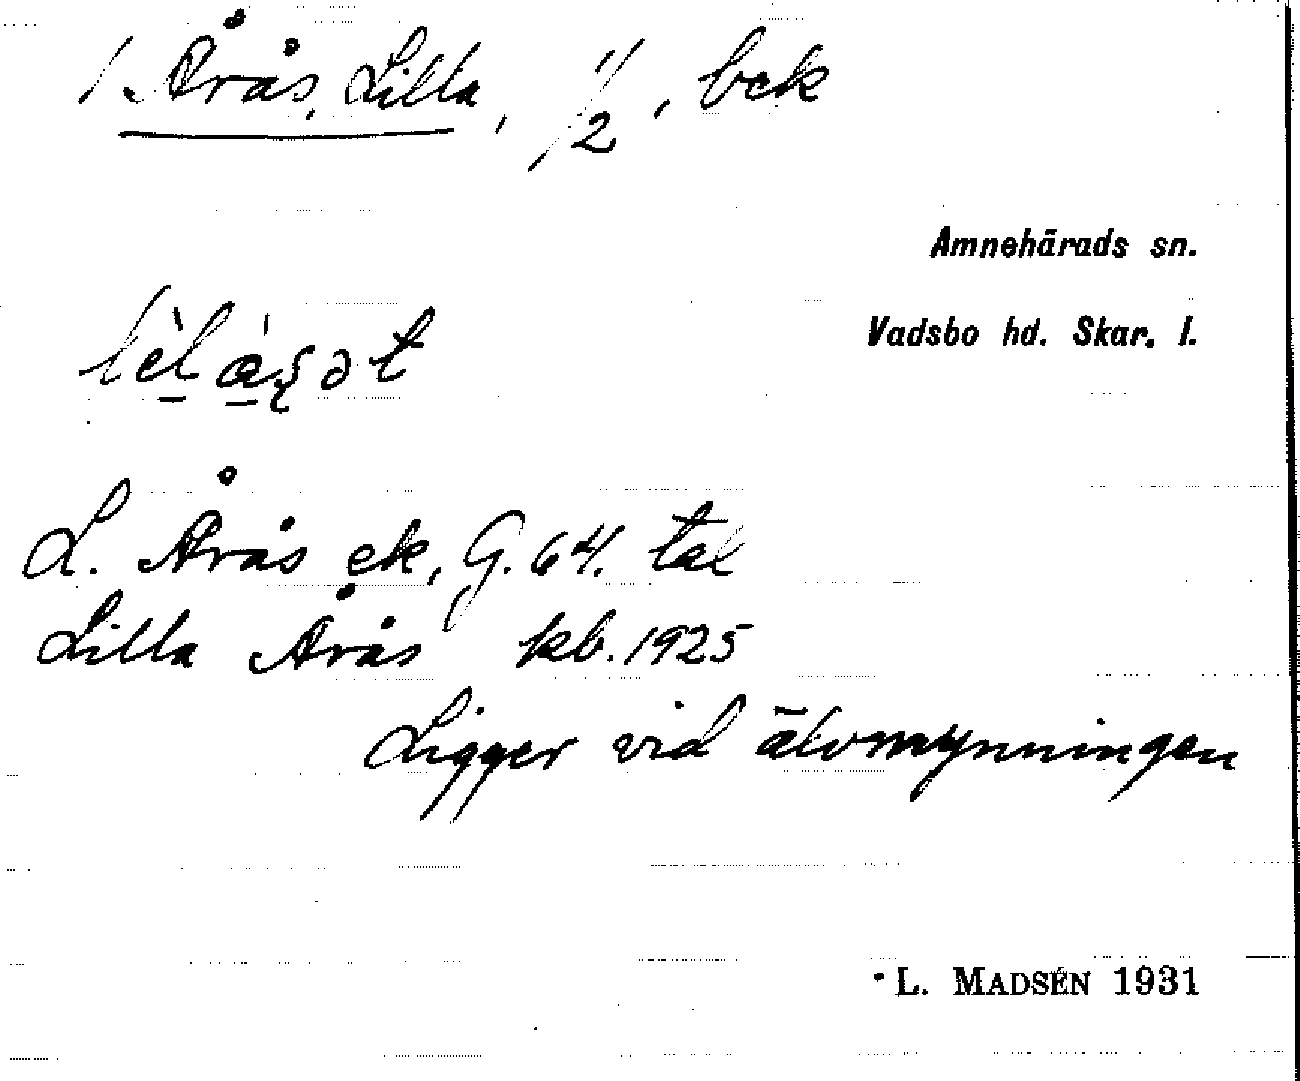 1 Årås, Lilla, 1/2, bek
Amnehärads sn.
Vadsbo hd. Skar. l.
L. Årås ek, G. 64. tal
Lilla Årås kb. 1925
Ligger vid älvmynningen
L. MADSÉN 1931